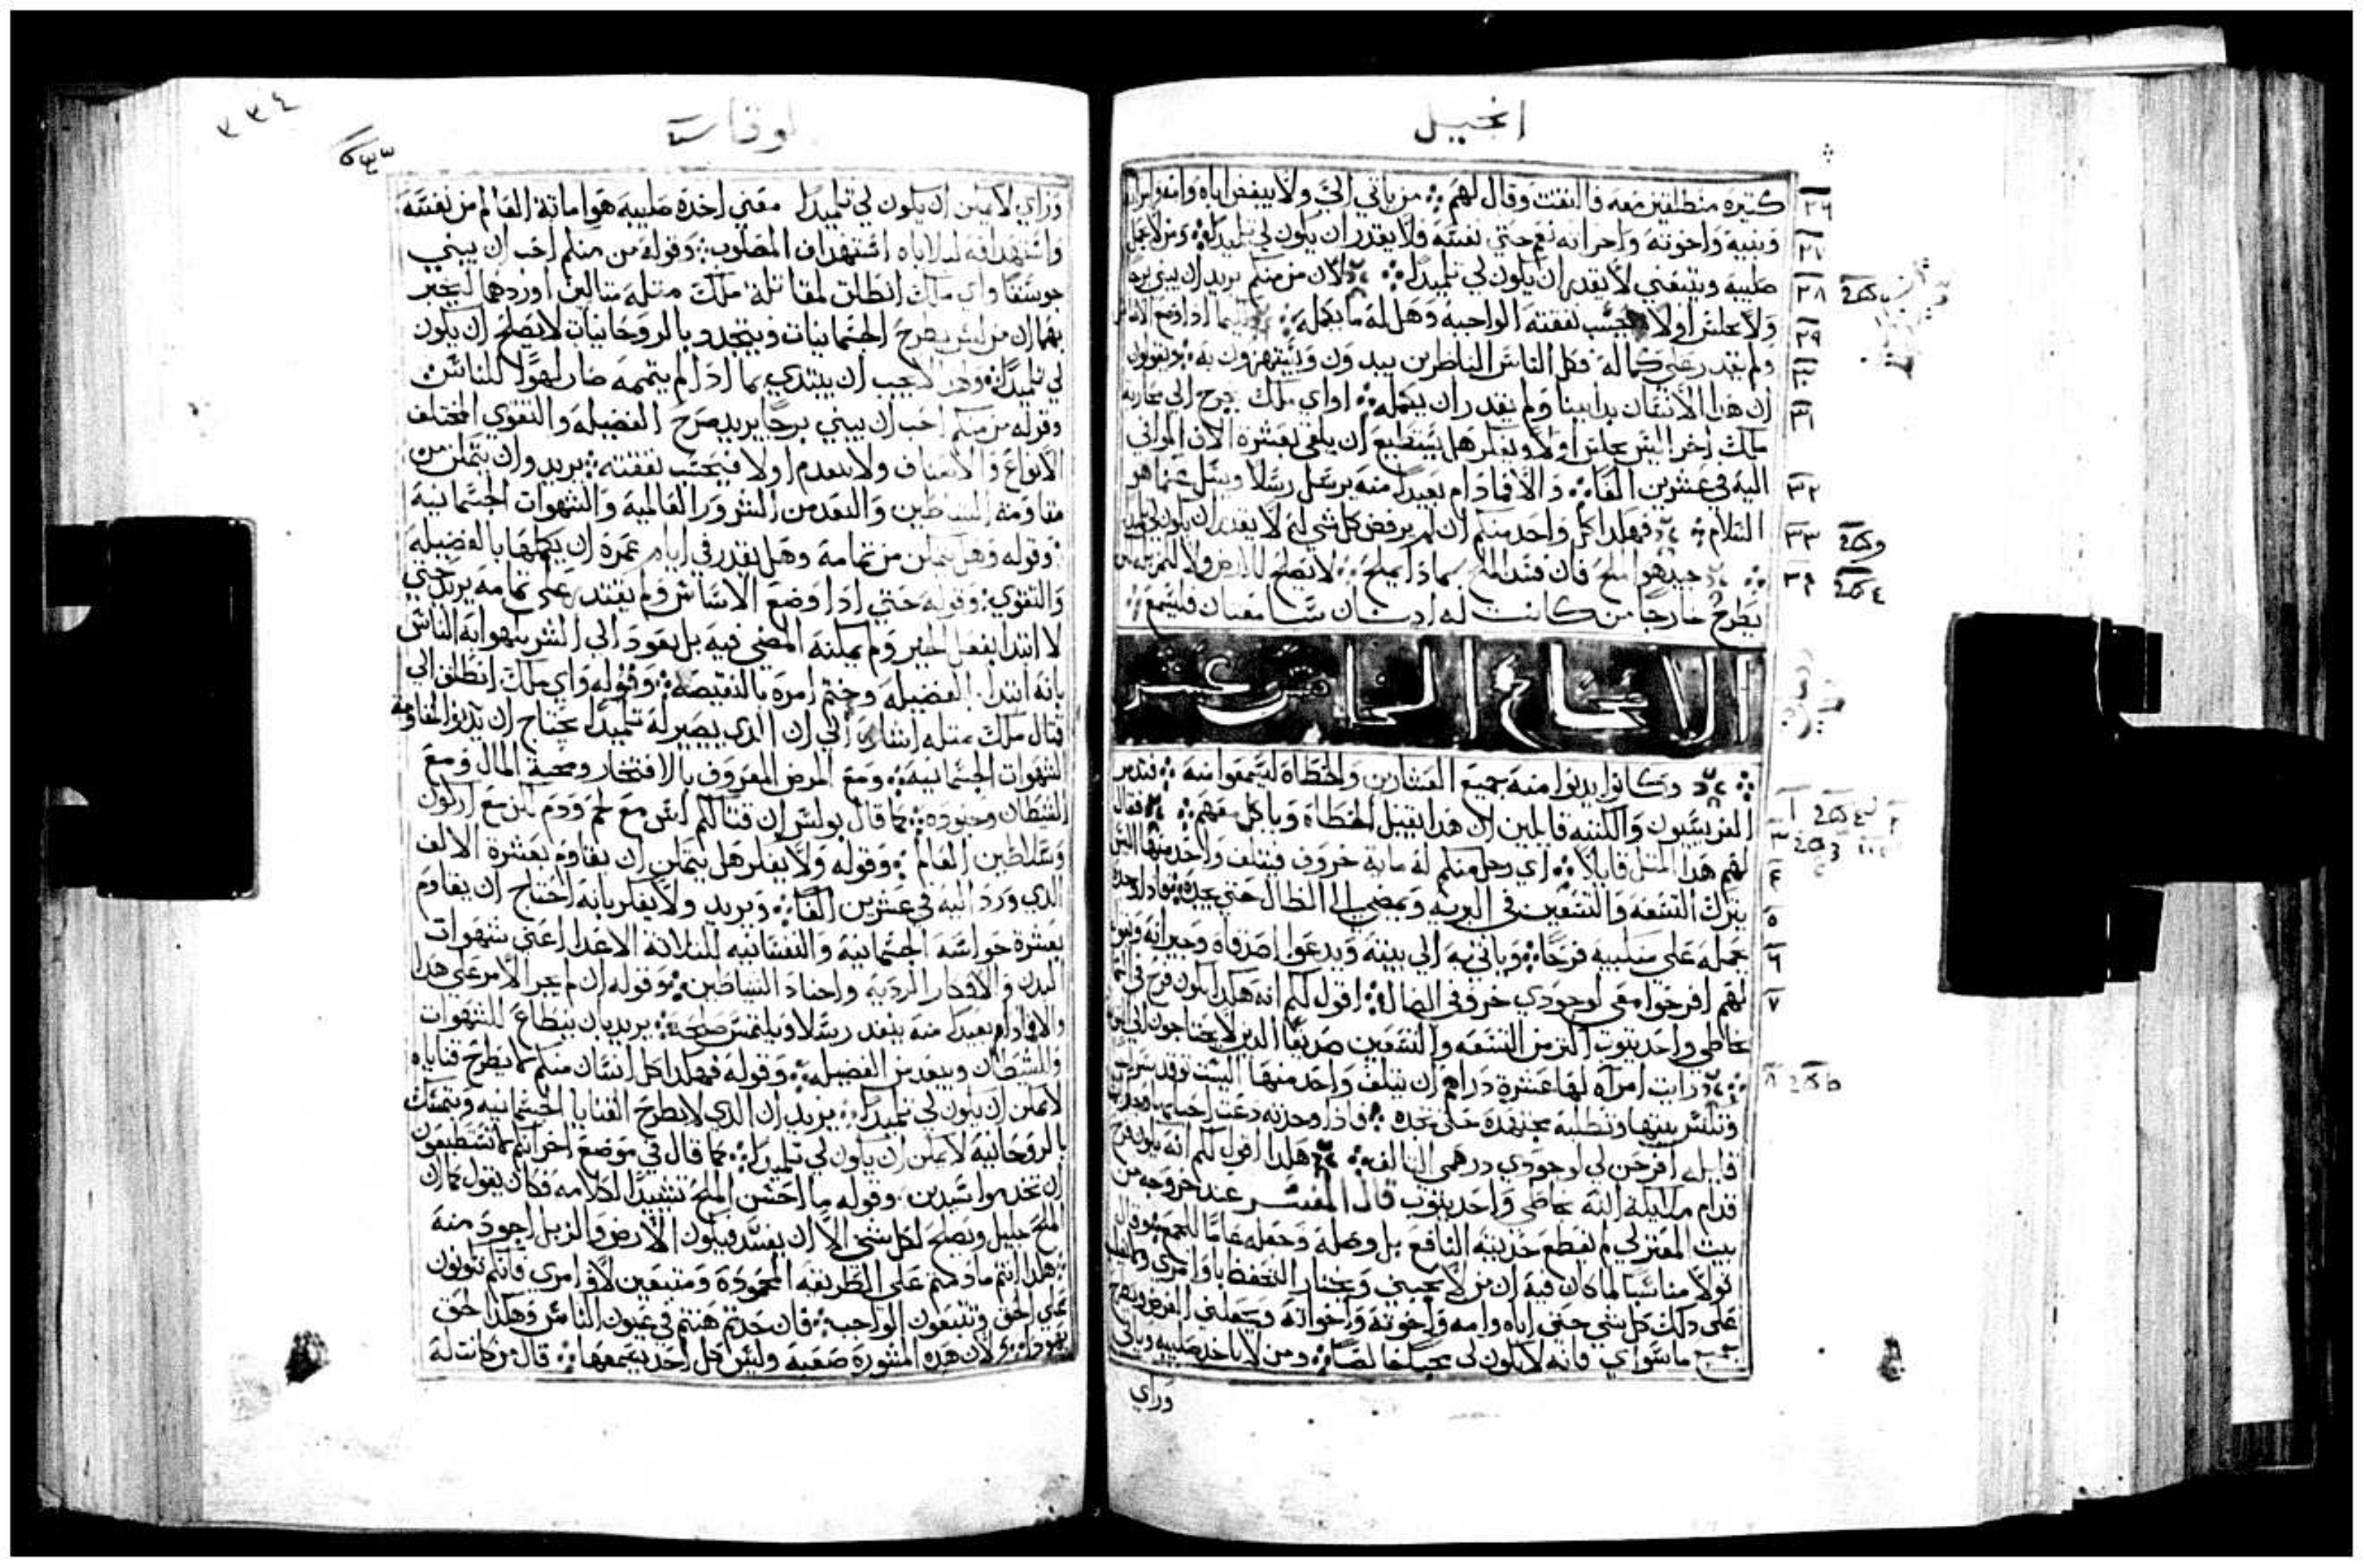 انجيل
كثيرة منطلقين معه فالتفت وقال لهم من ياتي الي ولا يبغض اباه وامه وامراته
وبنيه واخوته واخواته نعم حتي نفسه فلا يقدر ان يكون لي تلميدا ومن لا يحمل
صليبه ويتبعني لا يقدر ان يكون لي تلميدا لان من منكم يريد ان يبني برجا
ولا يجلس اولا فيحسب نفقته الواجبه وهل له ما يكمله اذا وضع الاساس
ولم يقدر علي كماله فكل الناس الناظرين يبدون ويستهزون به ويقولون
ان هدا الانسان بدا يبنا ولم يقدر ان يكمله او اي ملك يخرج الي محاربة
ملك اخر اليس يجلس اولا ويفكر هل يستطيع ان يلقي بعشرة الاف الموافي
اليه في عشرين الفا والا فمادام بعيدا منه يرسل رسلا ويسل عما هو
السلام فهكدا كل واحد منكم ان لم يرفض كل شي له لا يقدر ان يكون لي تلميد
جيد هو الملح فان فسد الملح بماذا يملح لا يصلح للارض ولا للمزبله لكن
يطرح خارجا من كانت له ادنان سامعتان فليسمع
الاصحاح الخامس عشر
وكانوا يدنوا منه جميع العشارين والخطاة ليسمعوا منه فتدمر
الفريسيون والكتبه قايلين ان هدا يقبل الخطاة وياكل معهم فقال
لهم هدا المثل قايلا اي رجل منكم له ماية خروف فيتلف واحد منها اليس
يترك التسعه والتسعين في البريه ويمضي الي الضال حتي يجده فاذا وجده
حمله علي منكبيه فرحا وياتي به الي بيته ويدعوا اصدقاه وجيرانه ويقول
لهم افرحوا معي لوجودي خروفي الضال اقول لكم انه هكدا يكون فرح في السما
بخاطي واحد يتوب اكثر من التسعه والتسعين صديقا الدين لا يحتاجون الي توبه
وايت امراه لها عشرة دراهم ان يتلف واحد منها اليست توقد سرج
وتكنس بيتها وتطلبه مجتهده حتي تجده فاذا وجدته دعت احبابها وجيرانها
قايله افرحن لي لوجودي درهمي التالف هكدا اقول لكم انه يكون فرح
قدام ملايكة الله بخاطي واحد يتوب قال المفسر عند خروجه من
بيت المعتزلي لم يقطع حديثه النافع بل وصله وجعله عاما للجميع وقال
قولا مناسبا لما كان فيه ان من لا يحبني ويختار التحفظ باوامري
علي دلك كل شي حتي اباه وامه واخوته واخواته ويجعلني الغرض
جميع ما سواي فانه لا يكون لي محبا خالصا ومن لا ياخد صليبه وياتي
وراي
لوقا
٣٣٤
وراي لا يمكن ان يكون لي تلميدا معني اخدة صليبه هو اماتة العالم من نفسه
واستهدافه لبلاياه استهداف المصلوب وقوله من منكم احب ان يبني
جوسقا واي ملك انطلق لمقاتلة ملك مثله مثالين اوردهما ليخبر
بهما ان من ليس يطرح الجسمانيات ويتجدد بالروحانيات لا يصلح ان يكون
لي تلميدا ولا يجب ان يبتدي بما ادا لم يتممه صار لهوا للناس
وقوله من منكم احب ان يبني برجا يريد صرح الفضيله والتقوي المختلف
الانواع والاصناف ولا يتقدم اولا فيحسب نفقته يريد وان يتمكن من
مقاومة الشياطين والبعد من الشرور العالمية والشهوات الجسمانية
وقوله وهل يتمكن من تمامه وهل يقدر في ايام عمرة ان يكملها بالفضيله
والتقوي وقوله حتي ادا وضع الاساس ولم يقتدر علي تمامه يريد حتي
لا ابتدا بفعل الخير ولم يمكنه المضي فيه بل يعود الي الشر يتهوا به الناس
بانه ابتدا بالفضيله وختم امره بالنقيصه وقوله واي ملك انطلق الي
قتال ملك مثله اشارة الي ان الدي يصير له تلميدا يحتاج ان يديم المقاومة
للشهوات الجسمانيه ومع المرض المعروف بالافتخار ومحبة المال ومع
الشيطان وجنوده كما قال بولس ان قتالكم ليس مع لحم ودم لكن مع اركون
وسلاطين العالم وقوله ولا يفكر هل يتمكن ان يقاوم بعشرة الالاف
الدي ورد اليه في عشرين الفا ويريد ولا يفكر بانه احتاج ان يقاوم
بعشرة حواسه الجسمانيه والنفسانيه للثلاثة الاعدا اعني شهوات
البدن والافكار الرديه واجناد الشياطين وقوله ان لم يجر الامر علي هدا
والا فادام بعيدا منه ينفد رسلا ويلتمس صلحه يريد بان يطاع للشهوات
وللشيطان ويبعد من الفضيله وقوله فهكدا كل انسان منكم لا يطرح قناياه
لا يمكن ان يكون لي تلميدا يريد ان الدي لا يطرح القنايا الجسمانيه ويتمسك
بالروحانيه لا يمكن ان يكون لي تلميدا كما قال في موضع اخر انكم لا تستطيعون
ان تخدموا سيدين وقوله ما احسن الملح تشييدا لكلامه فكان يقول كما ان
الملح جليل ويصلح لكل شي الا ان يفسد فيكون الارض والزبل اجود منه
هكدا انتم ما دمتم علي الطريقه المحمودة ومتبعين لاوامري فانكم تكونون
علي الحق وتتبعون الواجب فان حدتم هنتم في عيون الناس وهكدا الحق
لان هده المشورة صعبة وليس كل احد يسمعها قال من كانت له